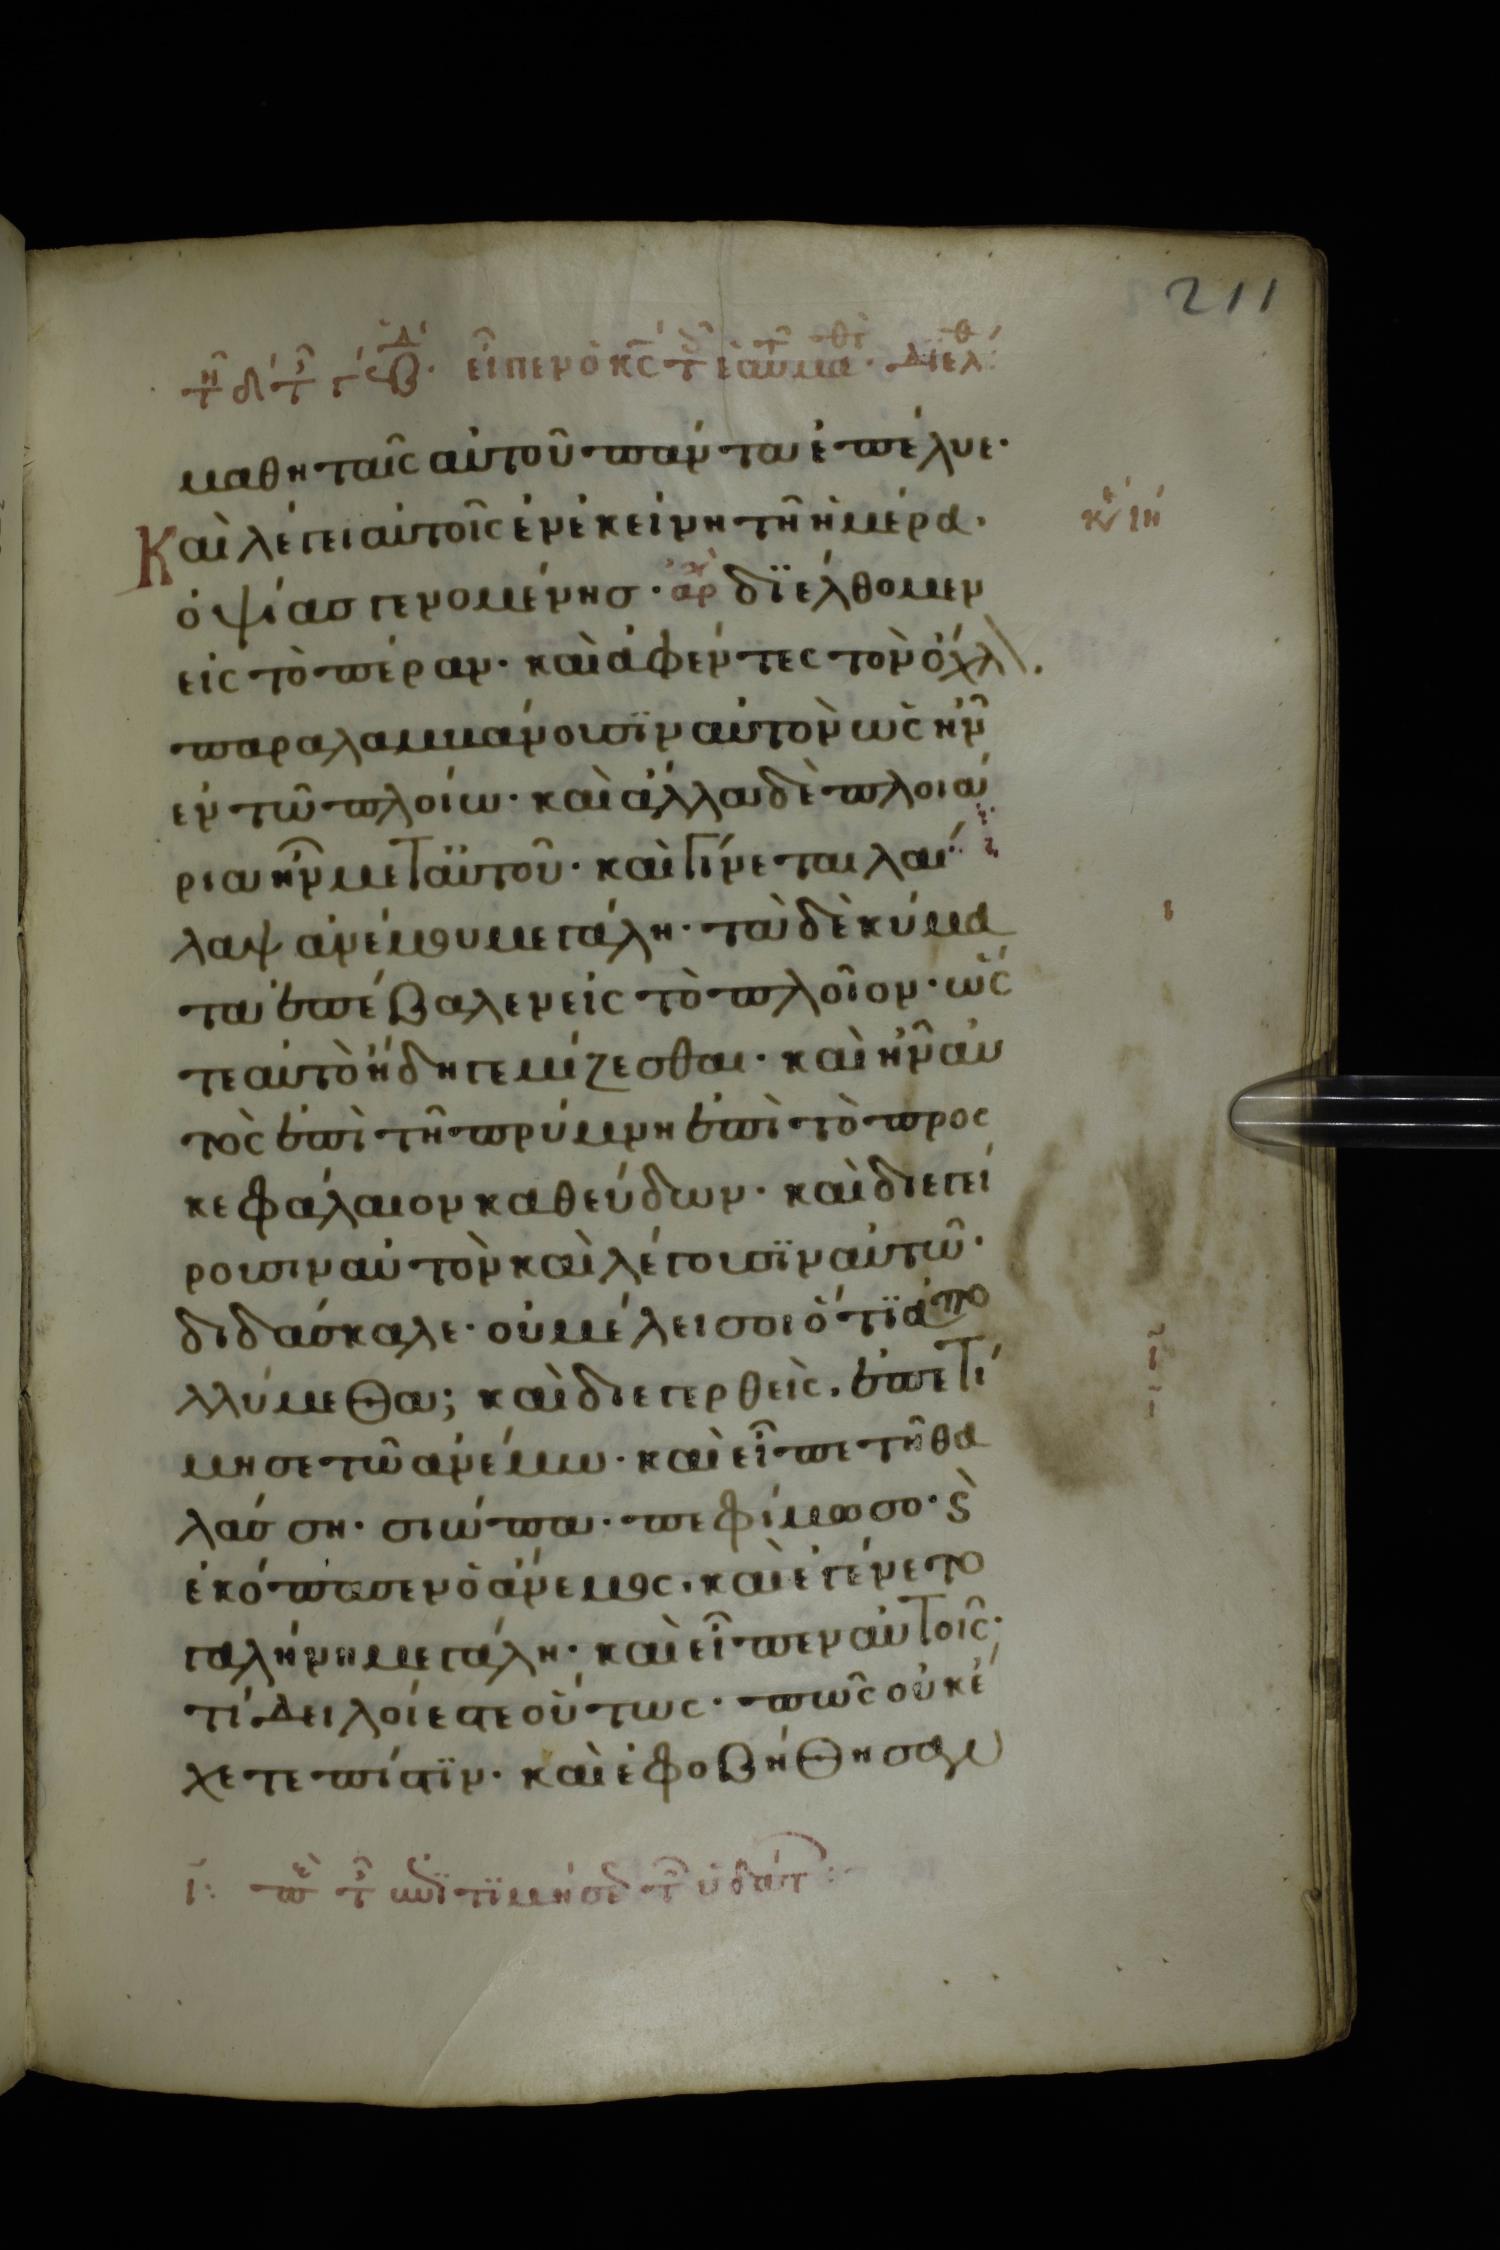 211
εἶπεν ὁ κς
μαθηταῖς αὐτοῦ πάντα ἐπέλυε·
Καὶ λέγει αὐτοῖς ἐν ἐκείνη τῆ ἡμέρα·
ὀψίασ γενομένησ· διέλθομεν
εἰς τὸ πέραν· καὶ ἀφέντες τὸν ὄχλ
παραλαμμάνουσϊν αὐτὸν ὡς ἦν
εν τῶ πλοίω· καὶ ἄλλα δὲ πλοιά
ρια ἦν μεταὐτοῦ· καὶ γίνεται λαί
λαψ ἀνέμου μεγάλη· τὰ δὲ κύμα
τα ἐπέβαλεν εἰς τὸ πλοῖον· ὥς
τε αὐτὸ ἤδη γεμίζεσθαι· καὶ ἦν αὐ
τὸς ἐπὶ τῆ πρύμνη ἐπὶ τὸ προς
κεφάλαιον καθεύδων· καὶ διεγεί
ρουσιν αὐτὸν καὶ λέγουσϊν αὐτῶ·
διδάσκαλε· οὐ μέλει σοι ὅτϊ ἀπο
λλύμεθα; καὶ διεγερθεὶς, ἐπετί
μησε τῶ ἀνέμω· καὶ εἶπε τῆ θα
λάσση· σιώπα· πεφίμωσο· ϗ
ἐκόπασεν ὁ ἄνεμος· καὶ ἐγένετο
γαλήνη μεγάλη· καὶ εἶπεν αὐτοῖς·
τί δειλοί εστε οὕτως· πῶς οὐκ ἔ
χετε πίστϊν· καὶ ἐφοβήθησαν